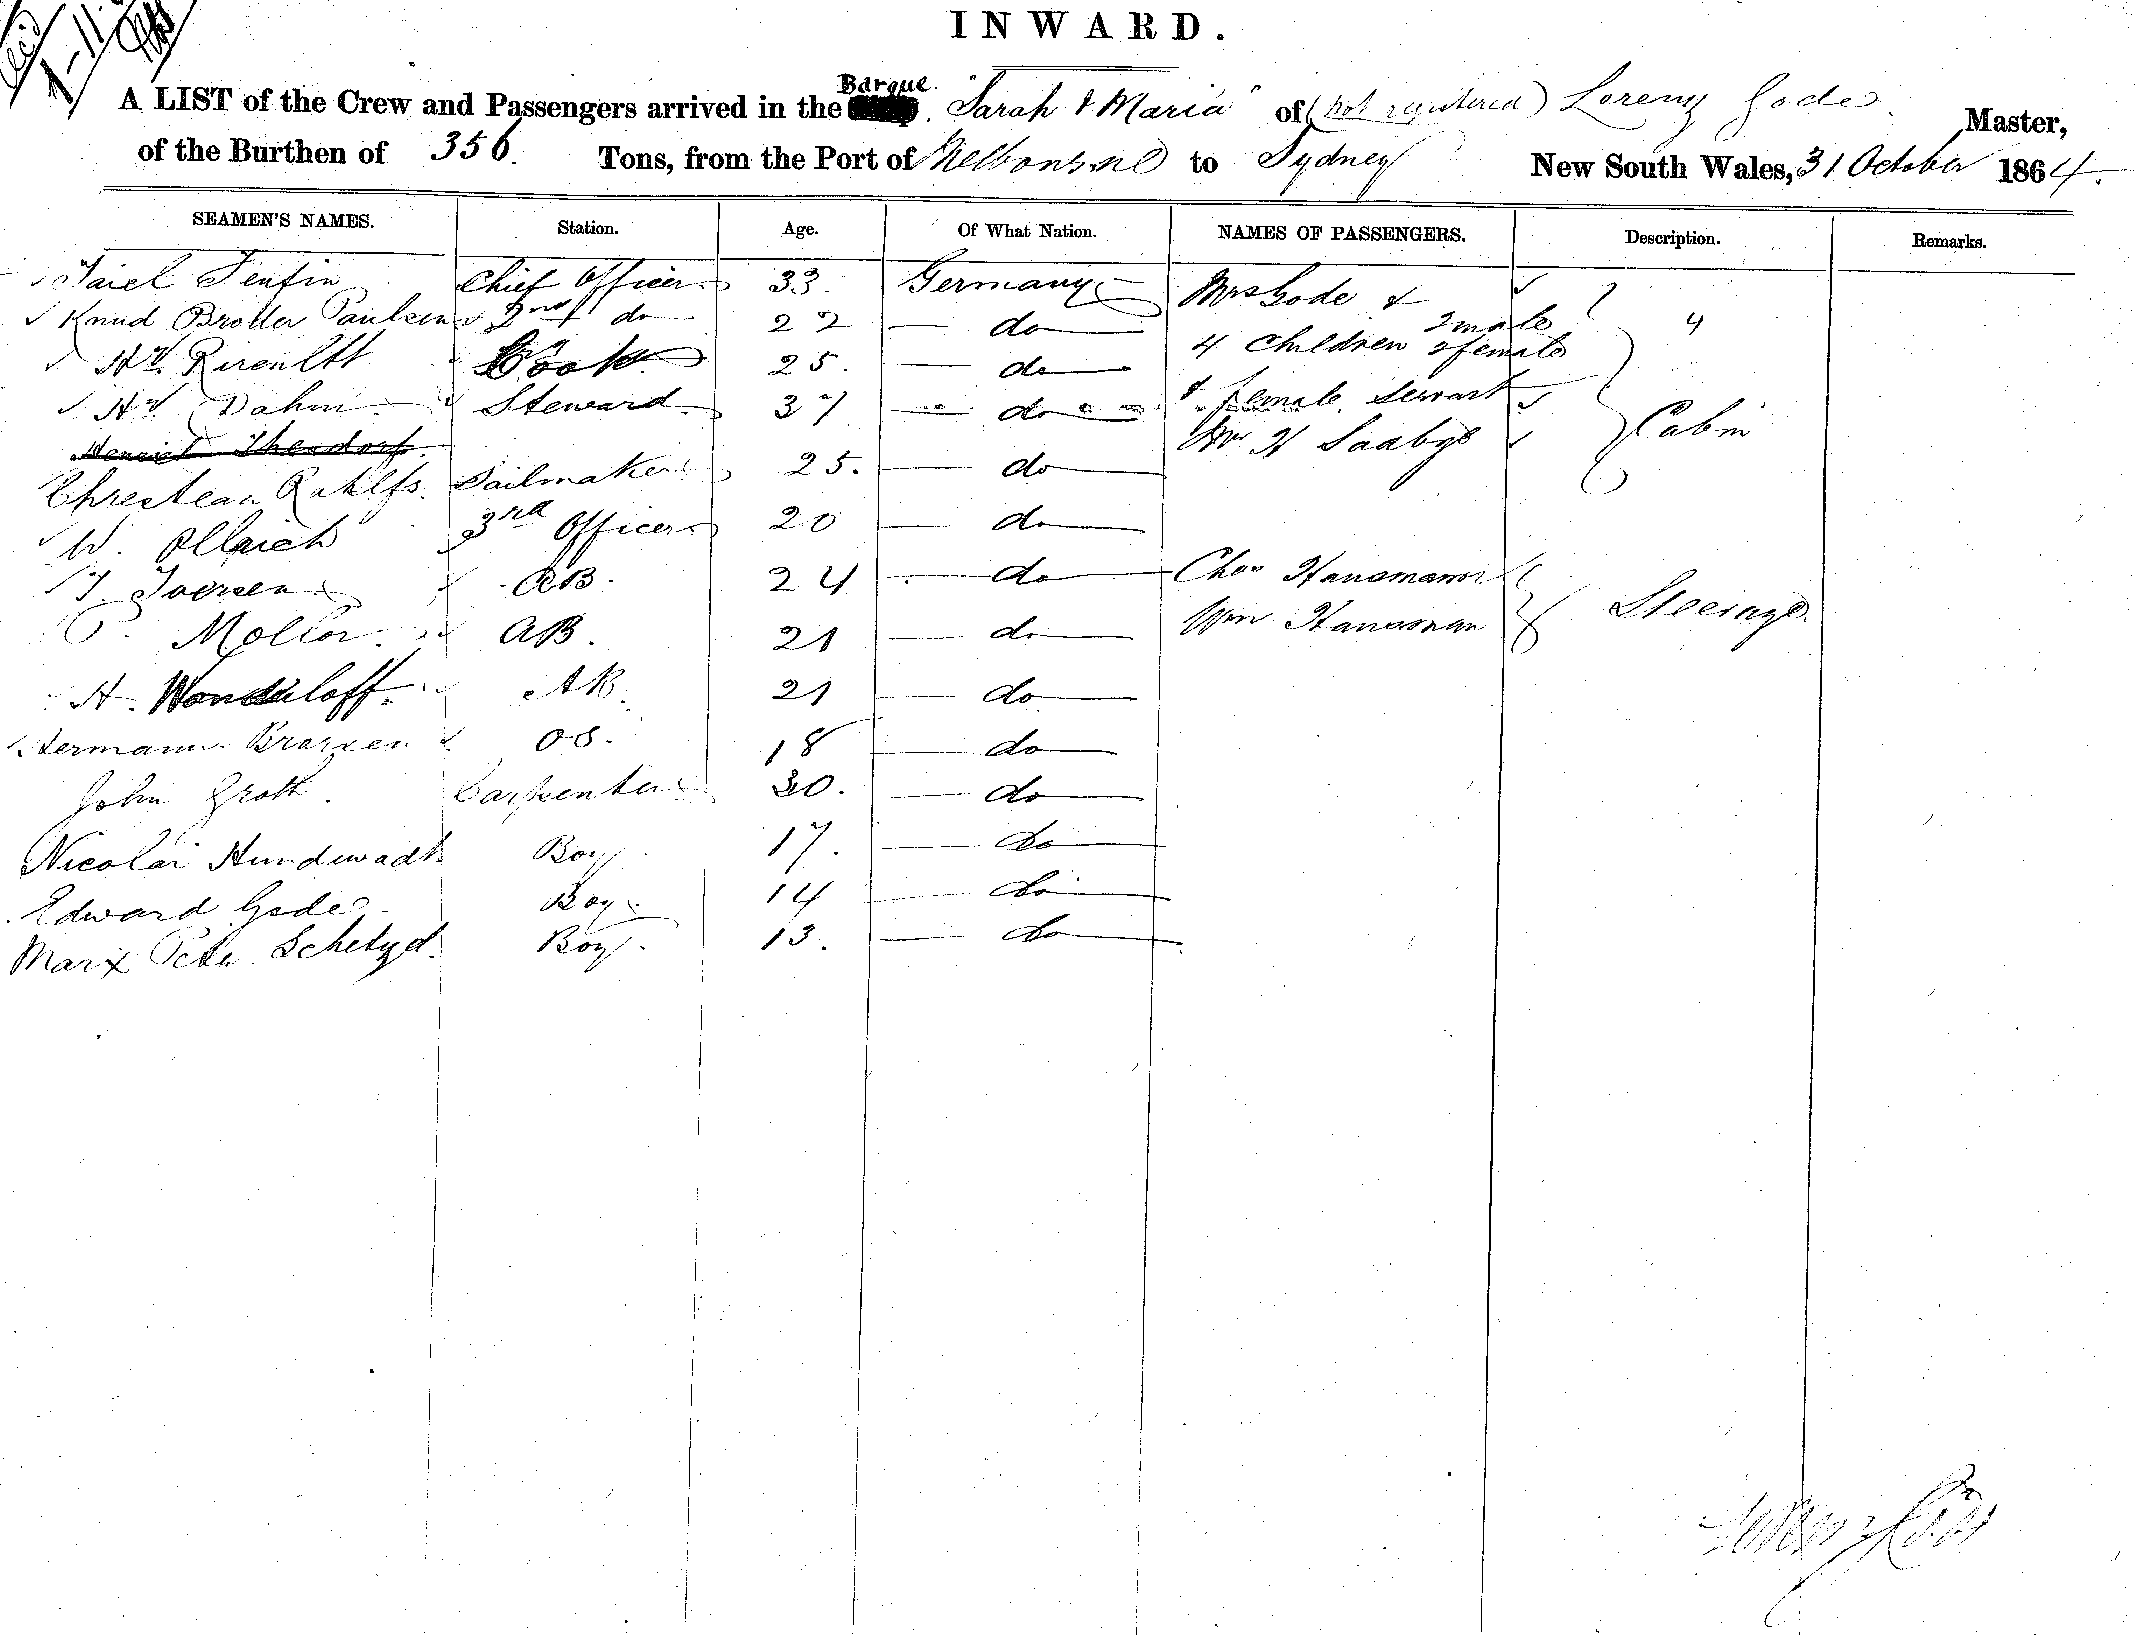 INWARD.
A LIST of the Crew and Passengers arrived in the Barque "Sarah & Maria" of (not registered) Lorenz Gode Master,
of the Burthen of 356 Tons, from the Port of Melbourne to Sydney New South Wales, 31 October 1864.
SEAMEN'S NAMES. Station. Age. Of What Nation. NAMES OF PASSENGERS. Description. Remarks.
Chief Officer 33 Germany Mrs Gode &
Knud Paulsen 2nd do 22 do 4 Children 2 male 2 female 4
Cook 25. do
Hy Dahm Steward 37 do & female Servant Cabin
Mr H Saabye
Sailmaker 25. do
W. 3rd Officer 20 do
AB. 24 do Chas Hanamann
P. Moller AB. 21 do Wm Hanaman Steerage
H. AB. 21 do
Hermann OS. 18 do
John Groth Carpenter 30. do
Nicolai Hundewadt Boy 17. do
Edward Gode Boy 14 do
Marx Peter Boy. 13. do